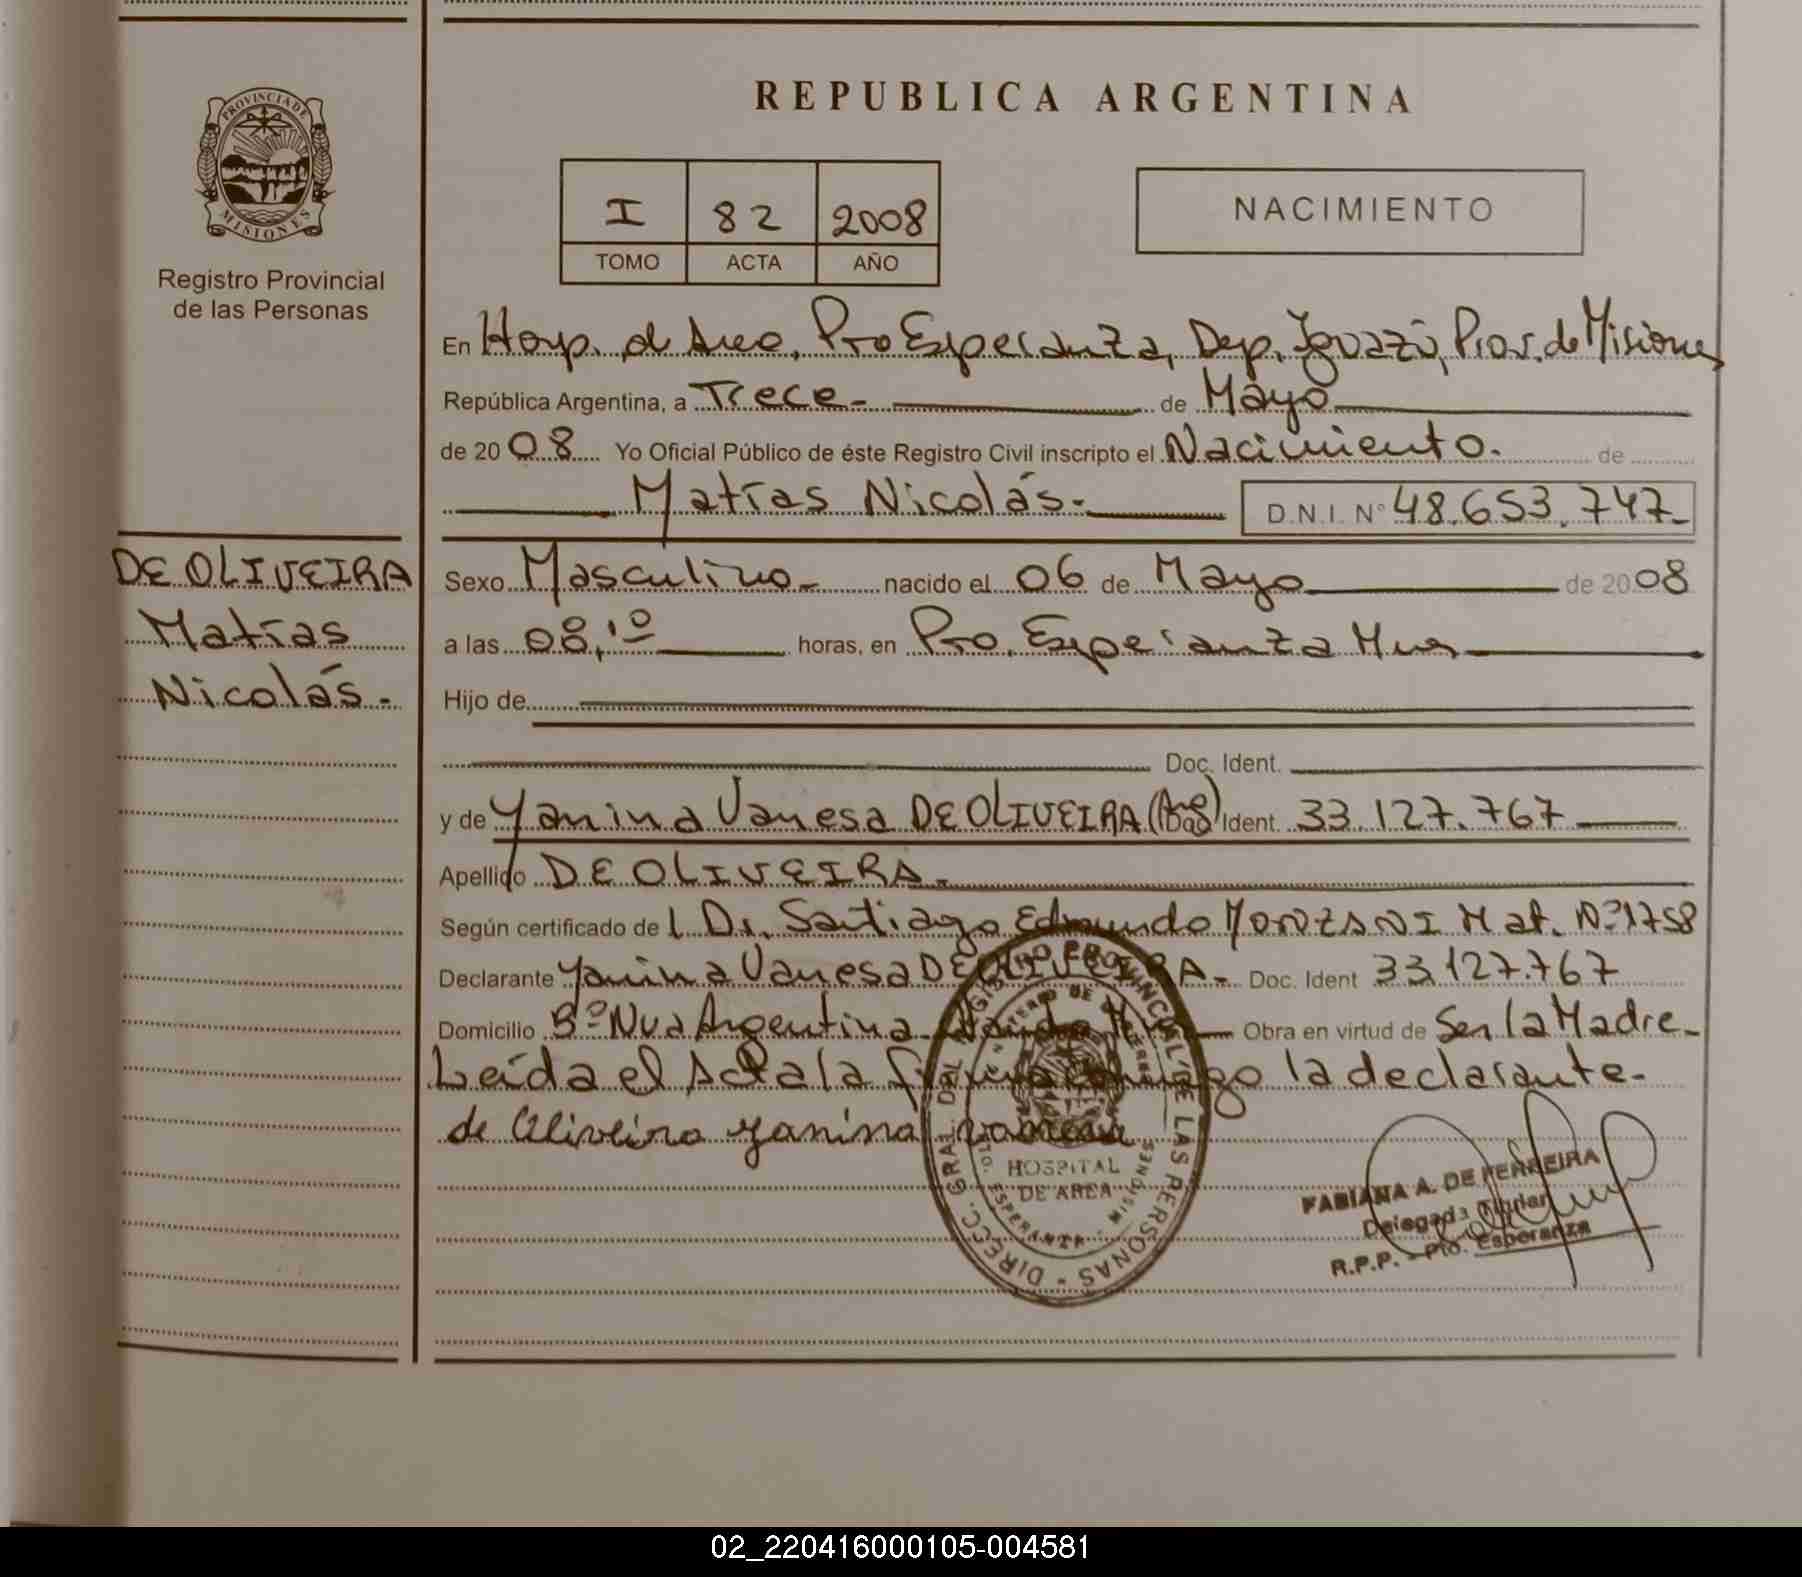 REPUBLICA ARGENTINA
PROVINCIA DE MISIONES
Registro Provincial
de las Personas
I 82 2008
TOMO ACTA AÑO
NACIMIENTO
En Hosp. de Area, Pto Esperanza, Dep. Iguazú, Prov. de Misiones
República Argentina, a Trece- de Mayo
de 2008 Yo Oficial Público de éste Registro Civil inscripto el Nacimiento. de
Matías Nicolás- D.N.I. N° 48.653.747-
DE OLIVEIRA
Matías
Nicolás-
Sexo Masculino- nacido el 06 de Mayo de 2008
a las 08,10 horas, en Pto. Esperanza Mnes
Hijo de
Doc. Ident.
y de Yanina Vanesa DE OLIVEIRA (Arg) Doc. Ident 33.127.767
Apellido DE OLIVEIRA-
Según certificado de l Dr. Santiago Edmundo MONZANI Mat. Nº 1758
Declarante Yanina Vanesa DE OLIVEIRA- Doc. Ident 33.127.767
Domicilio Bº Nva Argentina Obra en virtud de Ser la Madre-
Leída el Acta la conmigo la declarante-
de Oliveira yanina vanesa
DIRECC. GRAL. DEL REGISTRO PROVINCIAL DE LAS PERSONAS
HOSPITAL
DE AREA
PTO. ESPERANZA - MISIONES
FABIANA A. DE FERREIRA
Delegada Titular
R.P.P. - Pto. Esperanza
02_220416000105-004581